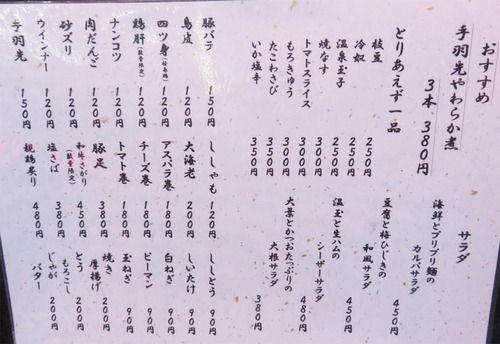 おすすめ
手羽先やわらか煮
3本 380円
サラダ
海鮮とプリプリ麺の
カルパサラダ 450円
豆腐と梅ひじきの
和風サラダ 450円
温玉と生ハムの
シーザーサラダ 480円
大葉とかつおたっぷりの
大根サラダ 380円
とりあえず一品
枝豆 250円
冷奴 250円
温泉玉子 250円
焼なす 300円
トマトスライス 300円
もろきゅう 300円
たこわさび 350円
いか塩辛 350円
豚バラ 150円
鳥皮 120円
四ツ身 120円
鶏肝(数量限定) 120円
ナンコツ 120円
肉だんご 120円
砂ズリ 120円
ウインナー 120円
手羽先 150円
ししゃも 120円
大海老 200円
アスパラ巻 180円
チーズ巻 180円
トマト巻 180円
豚足 380円
和牛さがり(数量限定) 450円
塩さば 380円
親鶏炙り 480円
ししとう 90円
しいたけ 90円
白ねぎ 90円
ピーマン 90円
玉ねぎ 90円
焼き
厚揚げ 200円
とう
もろこし 200円
じゃが
バター 200円